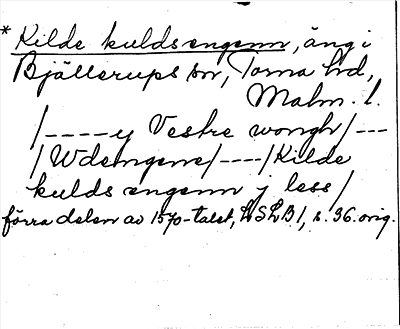 * Kilde kuldsengenn, äng i
Bjällerups sn, Torna hd,
Malm. l.
/----y Vestre wongh/---
/Wdemgene/----/Kilde
kulds engenn j less/
förra delen av 1570-talet, LSLB 1, s. 36. orig.